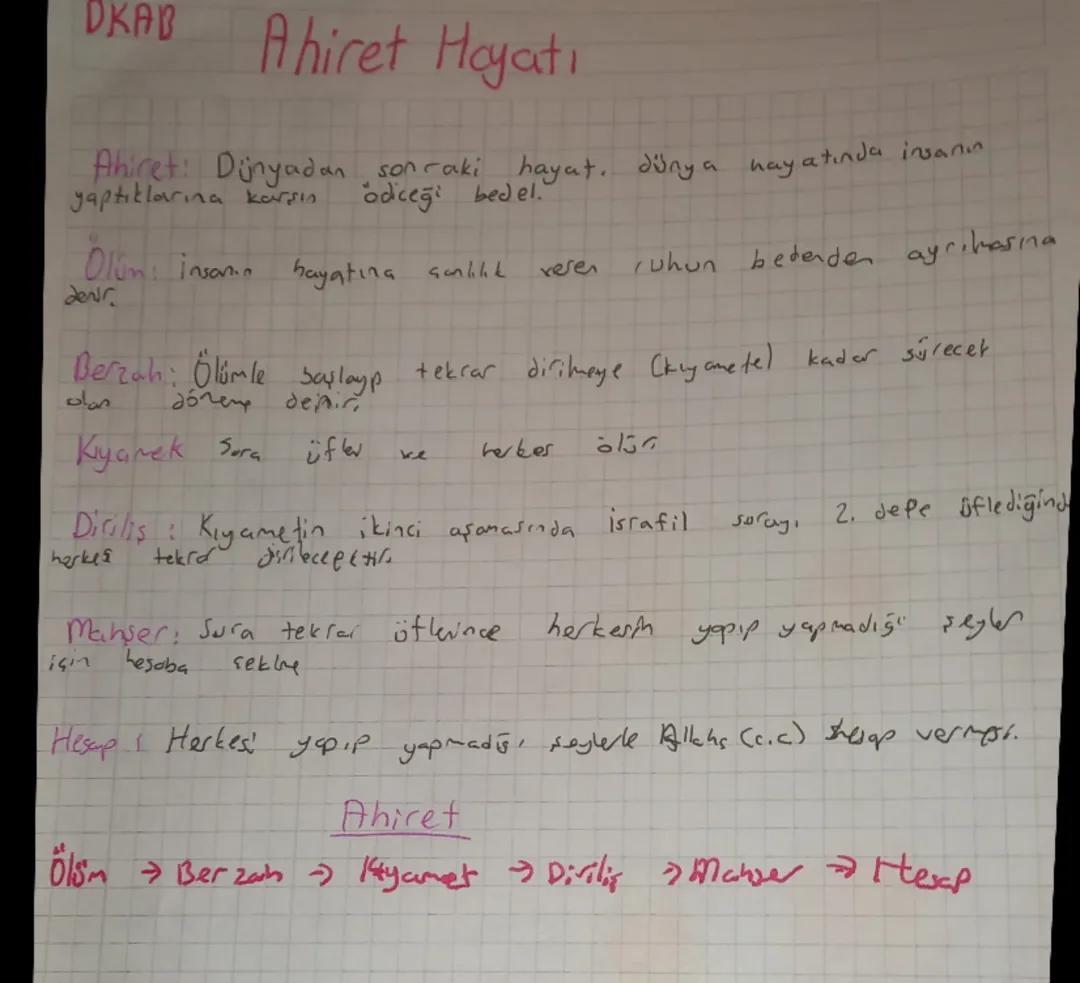 DKAB
Ahiret Hayatı
Ahiret: Dünyadan sonraki hayat. dünya hayatında insanın
yaptıklarına karşın ödiceği bedel.
Ölüm: insanın hayatına canlılık veren ruhun bedenden ayrılmasına
denir.
Berzah: Ölümle başlayıp tekrar dirilmeye (kıyamete) kadar sürecek
olan döneme denir.
Kıyamek Sura üfler ve herkes ölür
Diriliş: Kıyametin ikinci aşamasında israfil surayı 2. defe üflediğind
herkes tekrar dirilecektir.
Mahşer: Sura tekrar üflenince herkesin yapıp yapmadığı şeyler
için hesaba
Hesap: Herkesi yapıp yapmadığı şeylerle (c.c) hesap vermesi.
Ahiret
Ölüm → Berzah → Kıyamet → Diriliş → Mahşer → Hesap